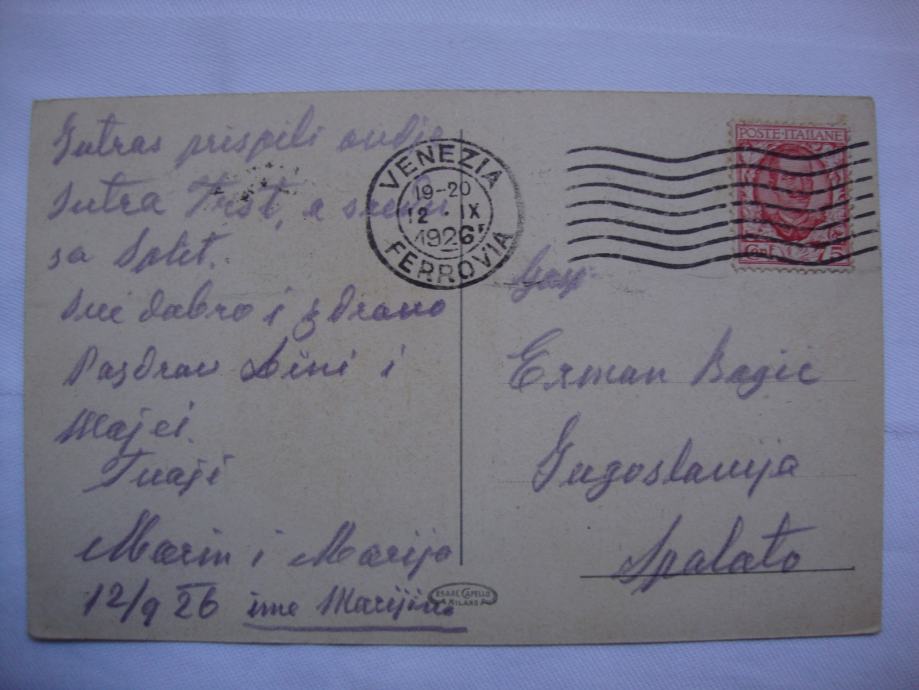 Jutras prispili ovdje
sutra Trst, a sredu
za Split.
Sve dobro i zdravo
Pozdrav Dini i
Majci.
Tvoji
Marin i Marija
12/9 26 ime Marijino
VENEZIA
19-20
12 · IX
1926
FERROVIA
POSTE·ITALIANE
Cent 75
Gosp.
Erman Bagic
Jugoslavija
Spalato
CESARE CAPELLO
MILANO